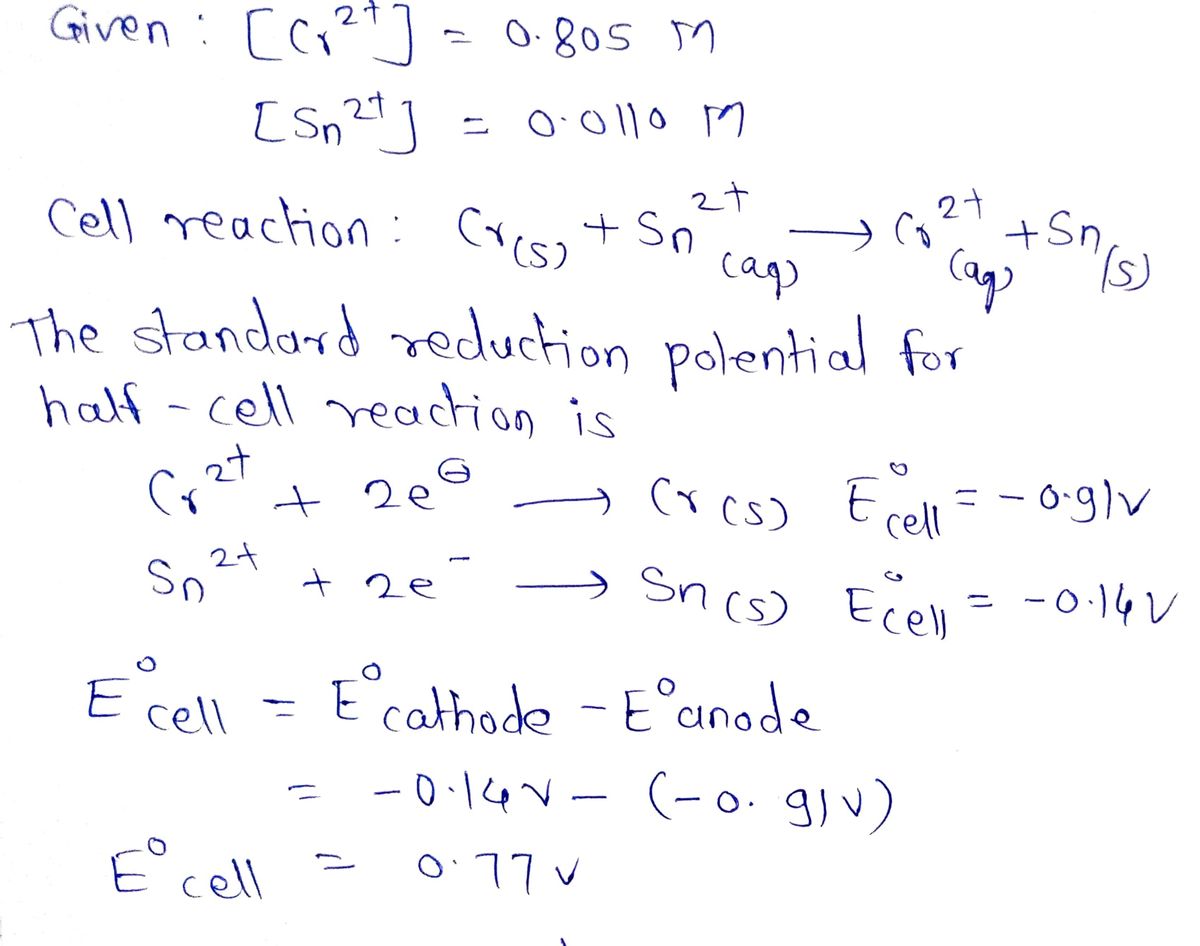 Given : [Cr²⁺] = 0.805 M
[Sn²⁺] = 0.0110 M
Cell reaction : Cr(s) + Sn²⁺(aq) → Cr²⁺(aq) + Sn(s)
The standard reduction potential for
half-cell reaction is
Cr²⁺ + 2e⊖ → Cr(s) E°cell = -0.91V
Sn²⁺ + 2e⁻ → Sn(s) E°cell = -0.14V
E°cell = E°cathode - E°anode
= -0.14V - (-0.91V)
E°cell = 0.77V